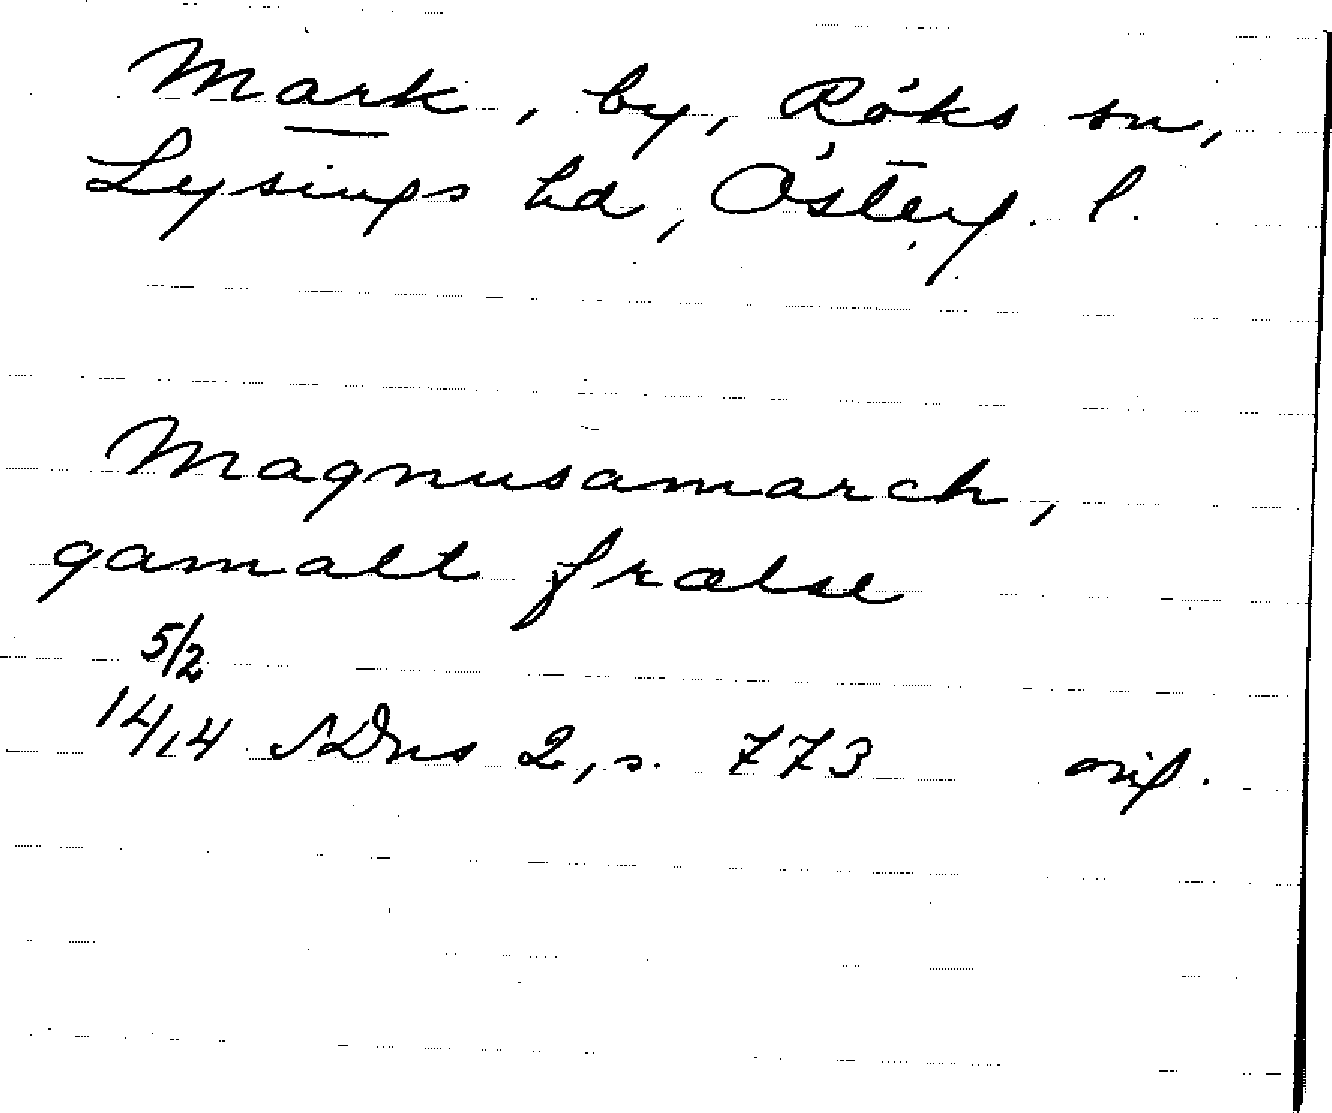 Mark, by, Röks sn,
Lysings hd, Österg. l.
Magnusamarch,
gamalt frælse
5/2
1414 SDns 2, s. 773 orig.